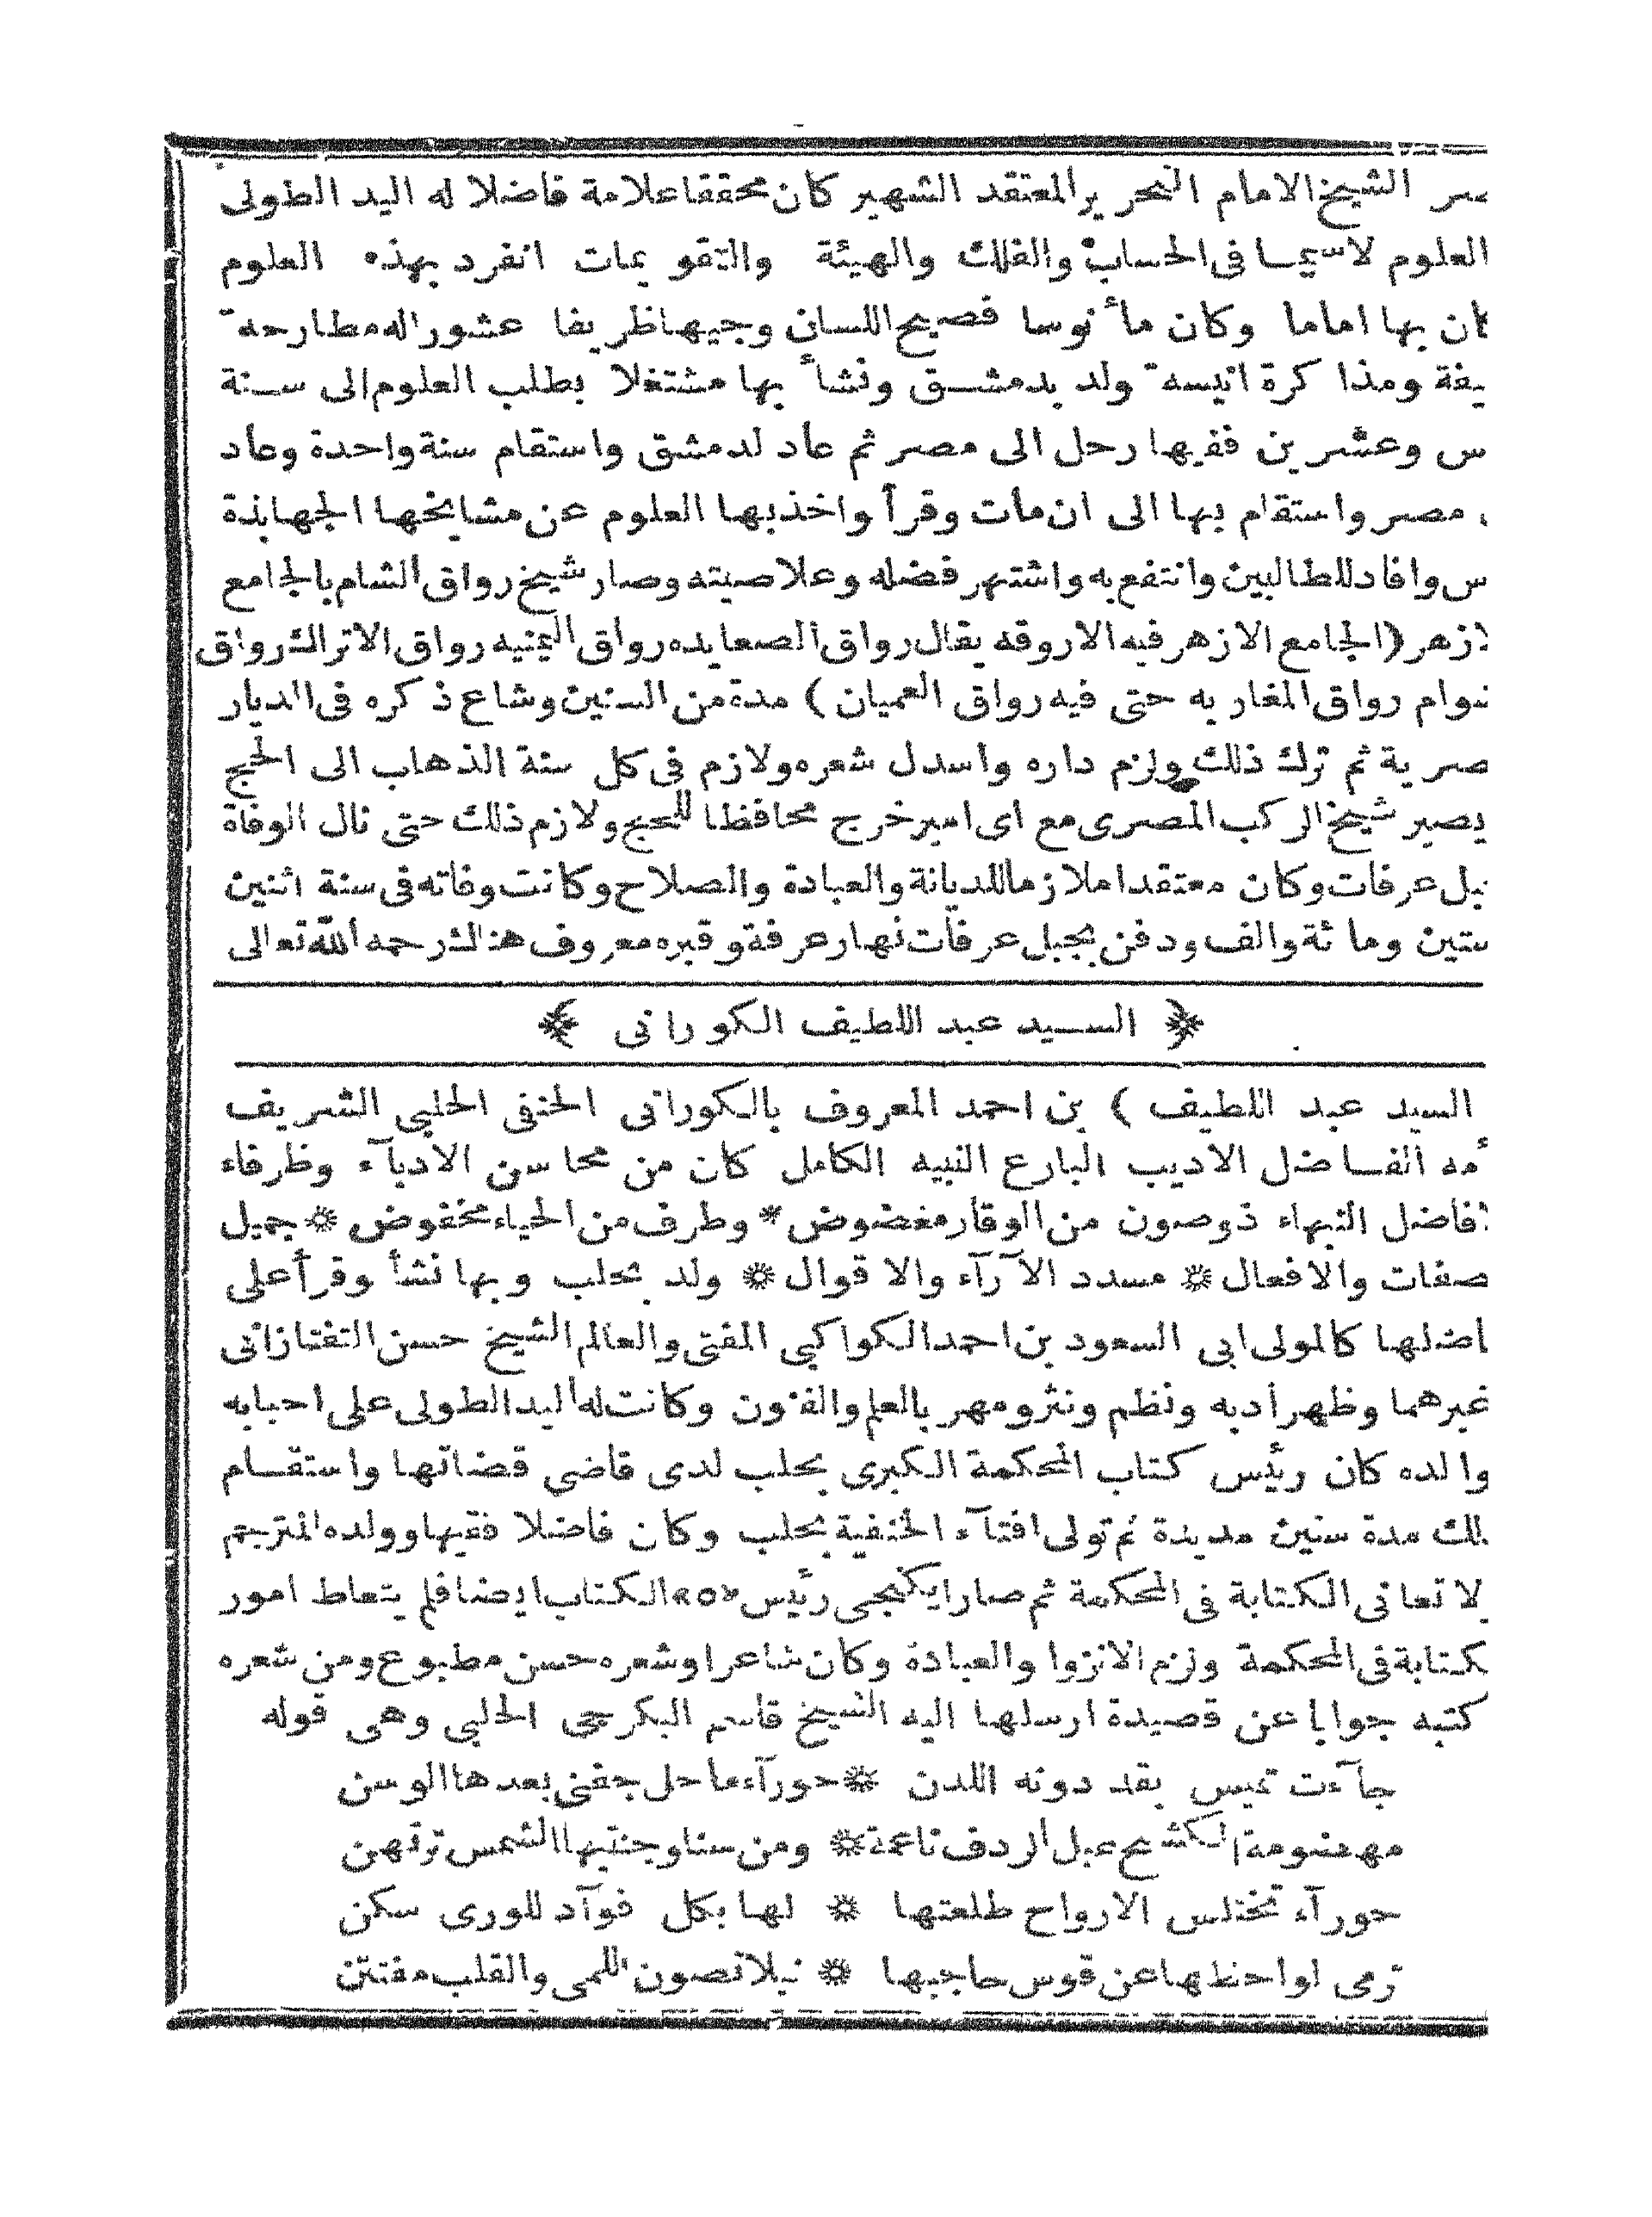 الشيخ الامام النحرير المعتقد الشهير كان محققا علامة فاضلا له اليد الطولى
العلوم لاسيما فى الحساب والفلك والهيئة والتقويمات انفرد بهذه العلوم
كان بها اماما وكان مأنوسا فصيح اللسان وجيها ظريفا عشورا له مطارحة
ومذاكرة انيسة ولد بدمشق ونشأ بها مشتغلا بطلب العلوم الى سنة
س وعشرين ففيها رحل الى مصر ثم عاد لدمشق واستقام سنة واحدة وعاد
مصر واستقام بها الى ان مات وقرأ واخذ بها العلوم عن مشايخها الجهابذة
س وافاد للطالبين وانتفع به واشتهر فضله وعلا صيته وصار شيخ رواق الشام بالجامع
لازهر (الجامع الازهر فيه الاروقه يقال رواق الصعايده رواق اليمنيه رواق الاتراك رواق
شوام رواق المغاربه حتى فيه رواق العميان) مدة من السنين وشاع ذكره فى الديار
صرية ثم ترك ذلك ولزم داره واسدل شعره ولازم فى كل سنة الذهاب الى الحج
يصير شيخ الركب المصرى مع اى امير خرج محافظا للحج ولازم ذلك حتى نال الوفاة
بل عرفات وكان معتقدا ملازما للديانة والعبادة والصلاح وكانت وفاته فى سنة اثنين
ستين ومائة والف ودفن بجبل عرفات نهار عرفة وقبره معروف هناك رحمه الله تعالى
﴿ السيد عبد اللطيف الكورانى ﴾
السيد عبد اللطيف ) بن احمد المعروف بالكورانى الحنفى الحلبى الشريف
أمه الفاضل الاديب البارع النبيه الكامل كان من محاسن الادبآء وظرفاء
لافاضل النبهاء ذو صون من الوقار مغضوض * وطرف من الحياء مخفوض * جميل
صفات والافعال * مسدد الآرآء والاقوال * ولد بحلب وبها نشأ وقرأ على
اضلها كالمولى ابى السعود بن احمد الكواكبى المفتى والعالم الشيخ حسن التفتازانى
غيرهما وظهر أدبه ونظم ونثر ومهر بالعلم والفنون وكانت له اليد الطولى على احبابه
والده كان رئيس كتاب المحكمة الكبرى بحلب لدى قاضى قضاتها واستقام
لك مدة سنين مديدة ثم تولى افتآء الحنفية بحلب وكان فاضلا فقيها وولده المترجم
لا تعانى الكتابة فى المحكمة ثم صار ايكنجى رئيس «٥» الكتاب ايضا فلم يتعاط امور
كتابة فى المحكمة ولزم الانزوا والعبادة وكان شاعرا وشعره حسن مطبوع ومن شعره
كتبه جوابا عن قصيدة ارسلها اليه الشيخ قاسم البكرجى الحلبى وهى قوله
جآءت تميس بقد دونه اللدن * حورآء ما حل جفنى بعدها الوسن
مهضومة الكشح عبل الردف ناعمة * ومن سنا وجنتيها الشمس ترتهن
حورآء تختلس الارواح طلعتها * لها بكل فوآد للورى سكن
ترمى لواحظها عن قوس حاجبها * نبلا تصون اللمى والقلب مفتتن